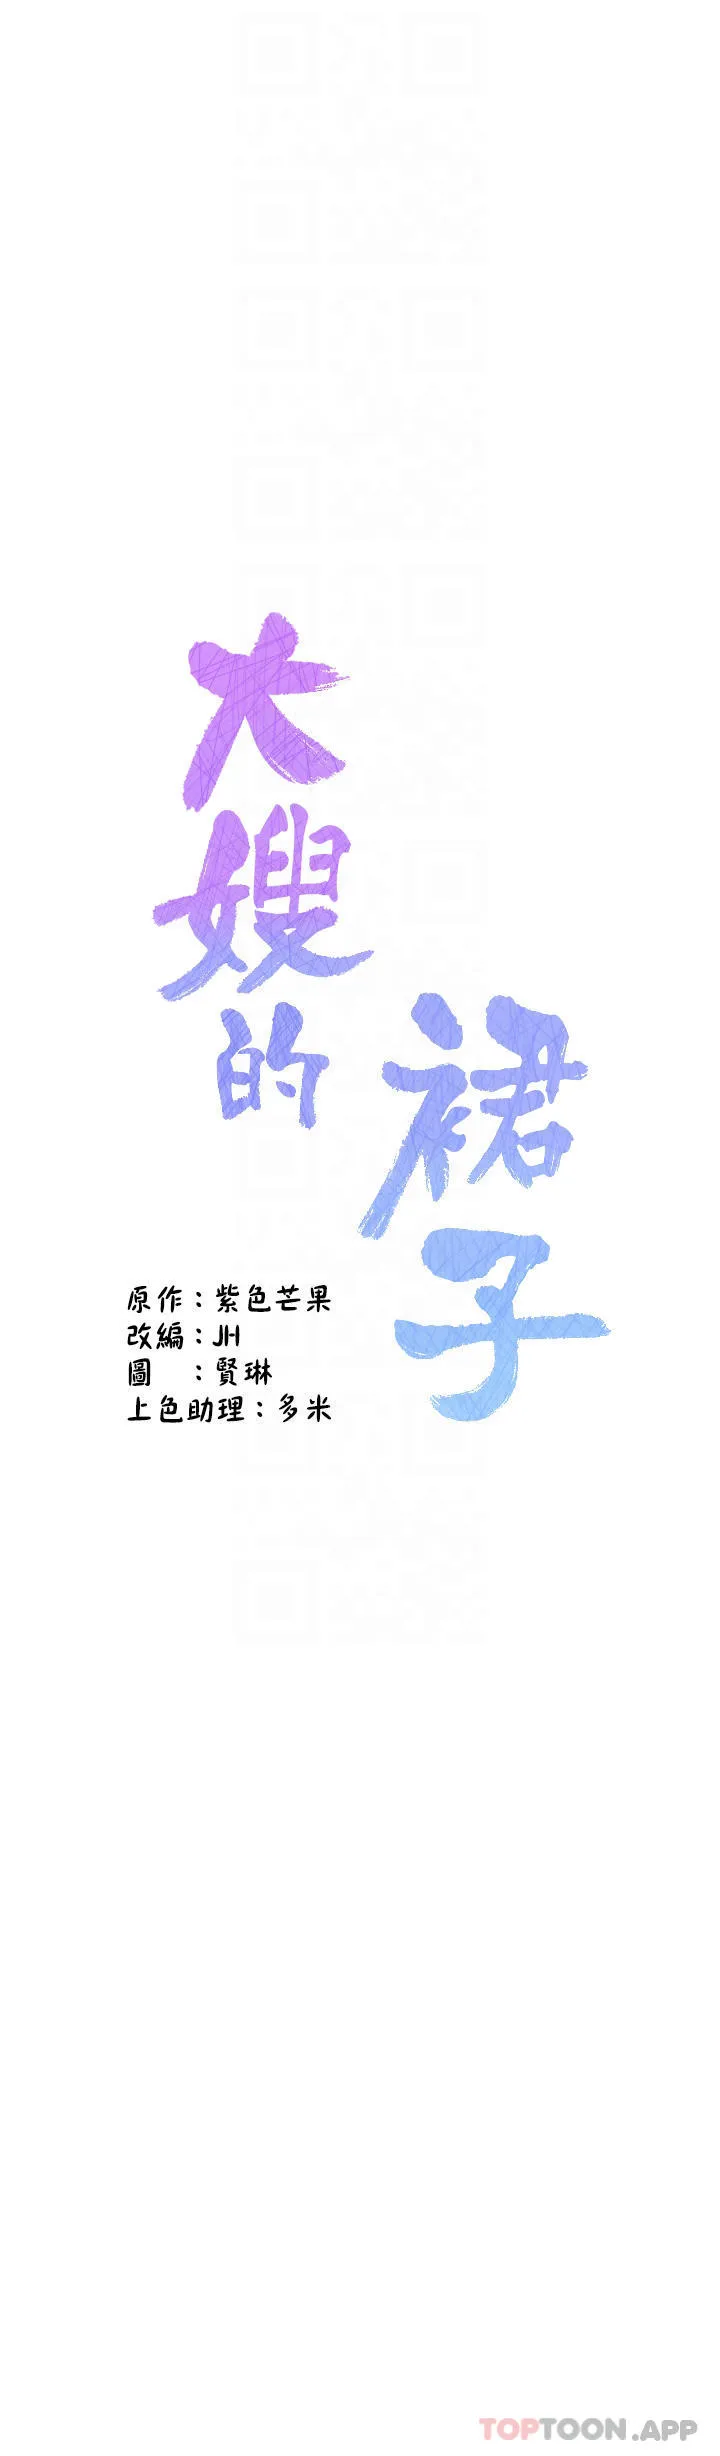 大嫂的
裙子
原作：紫色芒果
改編：JH
圖　：賢琳
上色助理：多米
TOPTOON.APP